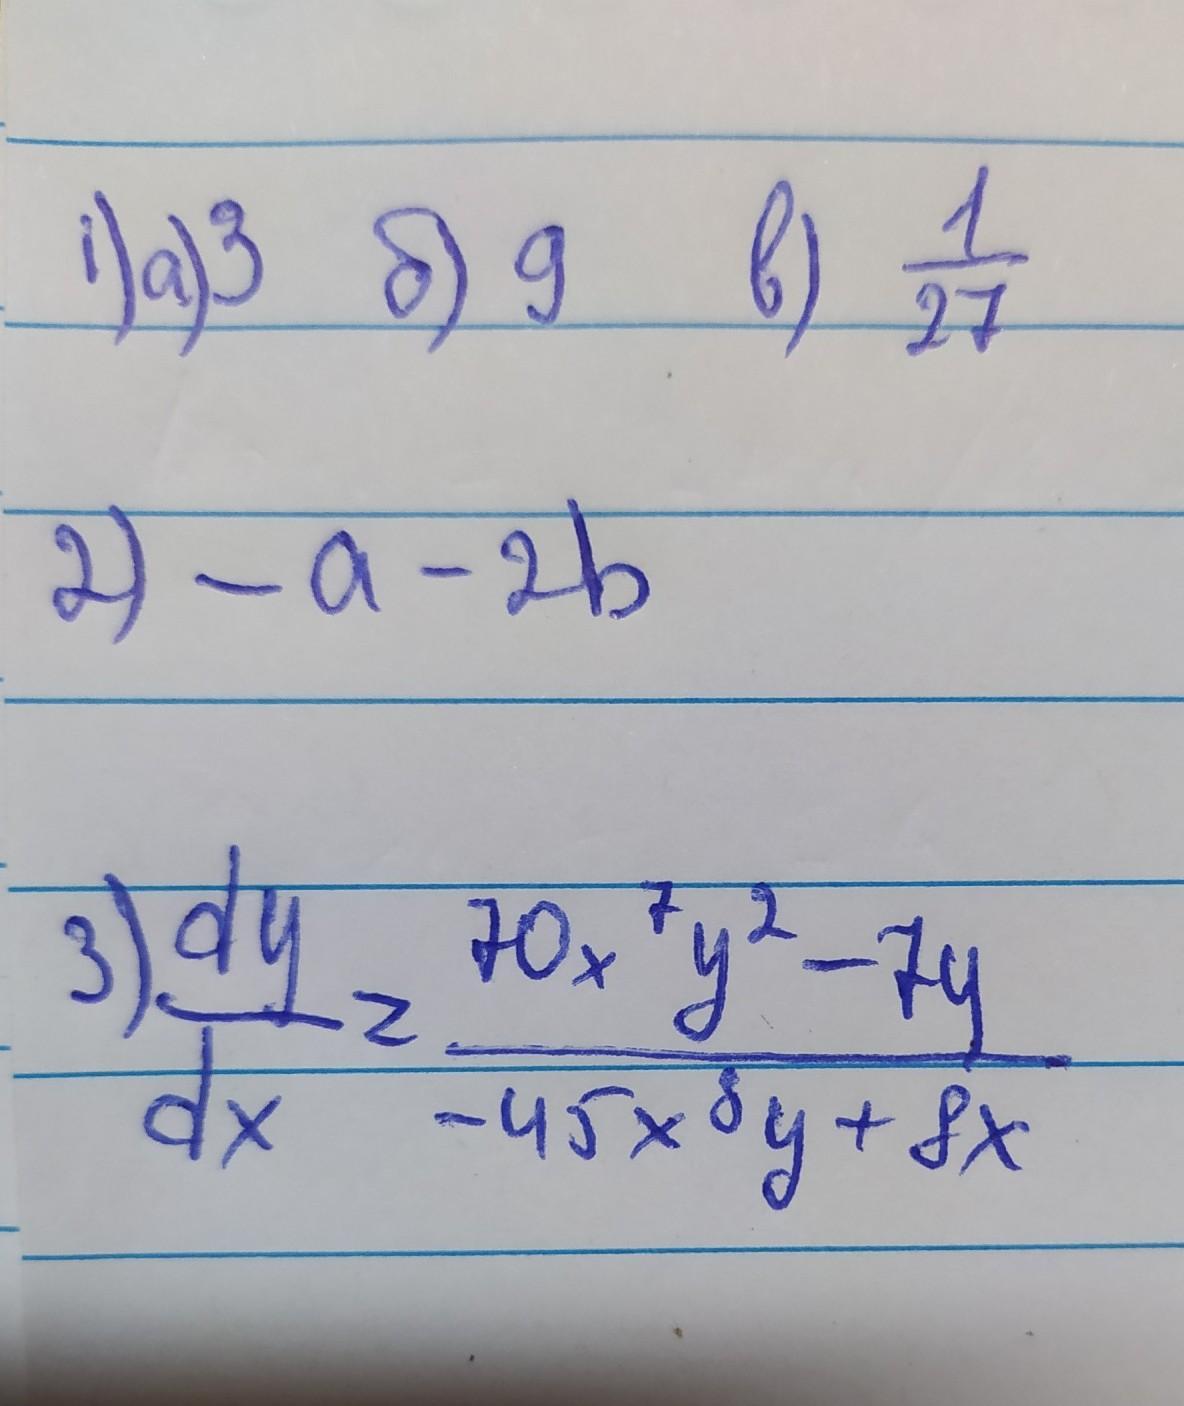 1) а) 3 б) 9 в) 1/27
2) - a - 2b
3) dy/dx = (70x⁷y² - 7y)/(-45x⁸y + 8x)